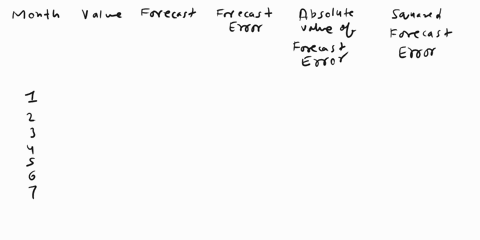 Month Value Forecast Forecast Error Absolute value of Forecast Error Squared Forecast Error
1
2
3
4
5
6
7